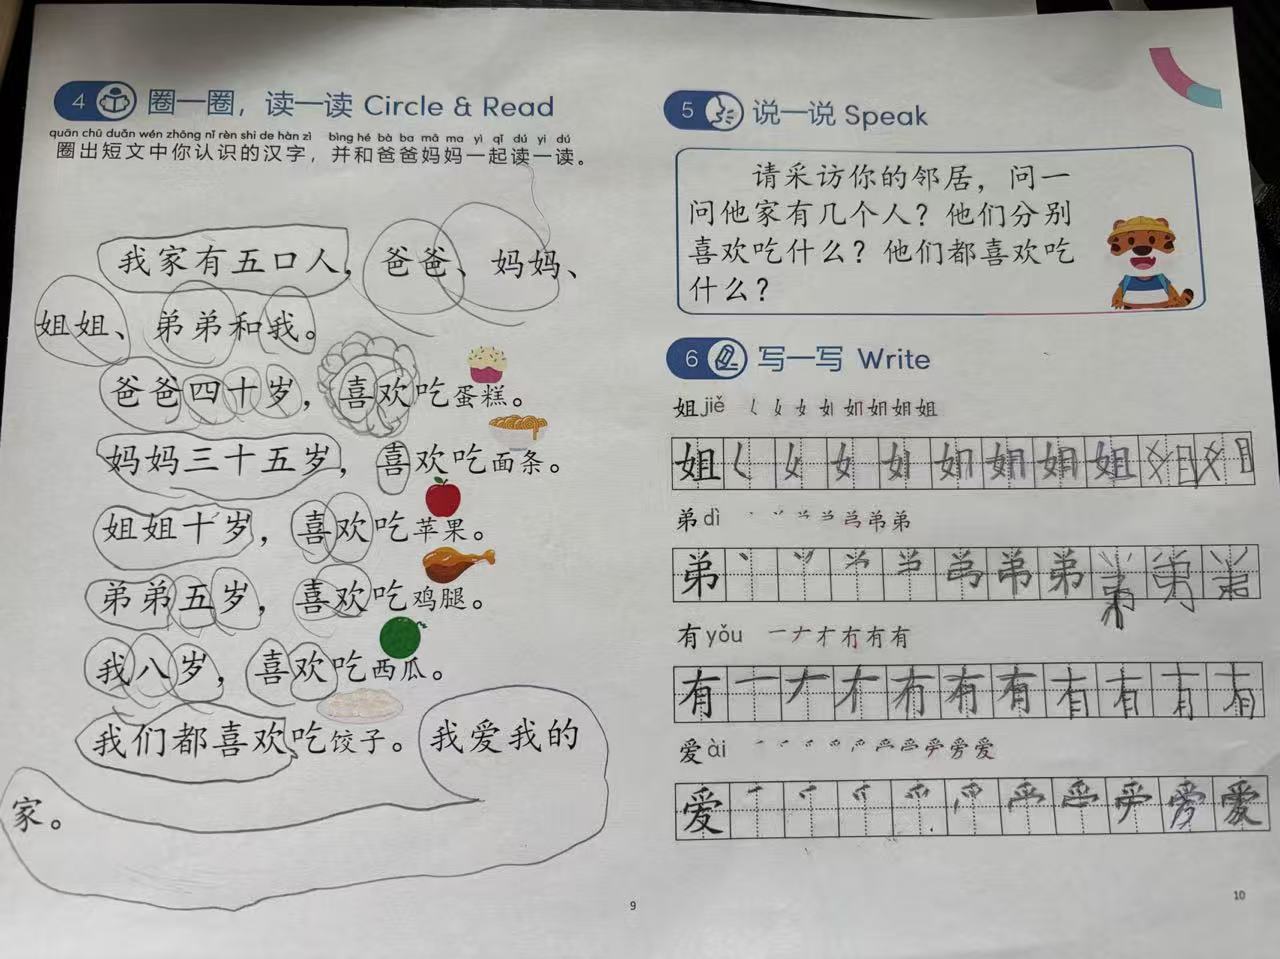 4 圈一圈，读一读 Circle & Read
quān chū duǎn wén zhōng nǐ rèn shi de hàn zì bìng hé bà ba mā ma yì qǐ dú yi dú
圈出短文中你认识的汉字，并和爸爸妈妈一起读一读。
我家有五口人，爸爸、妈妈、
姐姐、弟弟和我。
爸爸四十岁，喜欢吃蛋糕。
妈妈三十五岁，喜欢吃面条。
姐姐十岁，喜欢吃苹果。
弟弟五岁，喜欢吃鸡腿。
我八岁，喜欢吃西瓜。
我们都喜欢吃饺子。我爱我的
家。
9
5 说一说 Speak
请采访你的邻居，问一
问他家有几个人？他们分别
喜欢吃什么？他们都喜欢吃
什么？
6 写一写 Write
姐 jiě
姐 姐
弟 dì
弟 弟 弟 弟 弟
有 yǒu
有 有 有 有 有 有 有
爱 ài
爱 爱
10